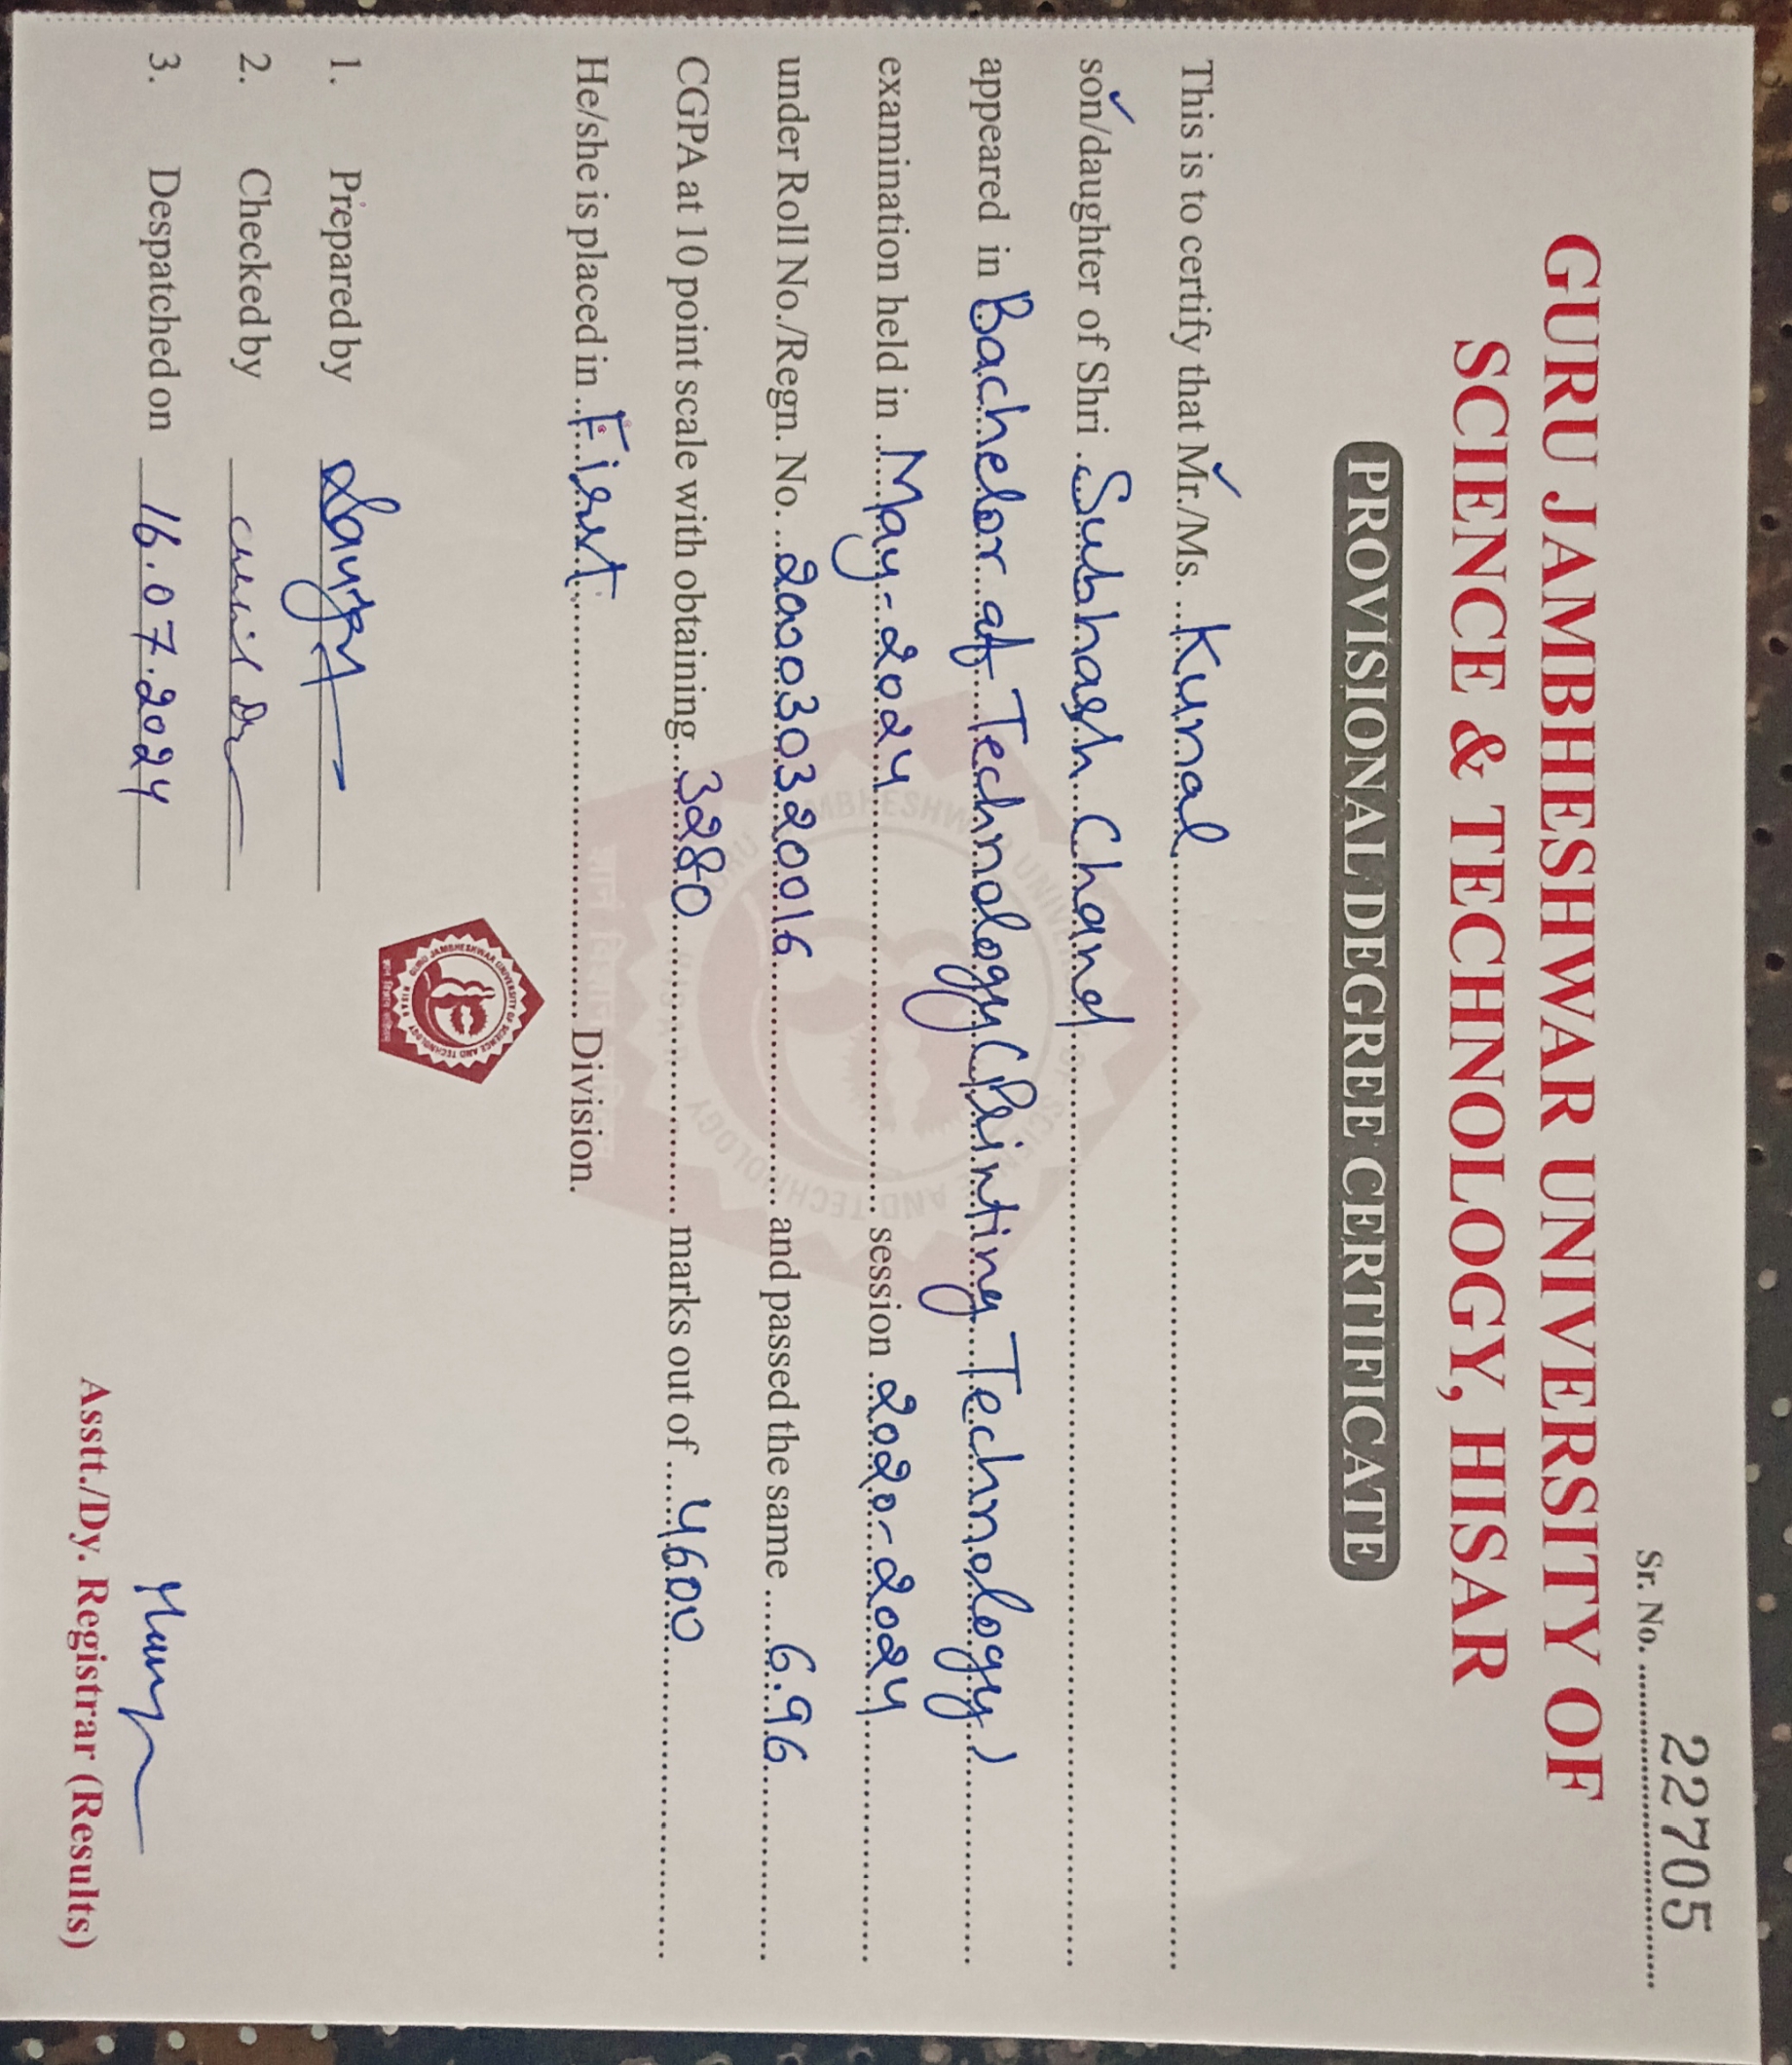 Sr. No. 22705
GURU JAMBHESHWAR UNIVERSITY OF
SCIENCE & TECHNOLOGY, HISAR
PROVISIONAL DEGREE CERTIFICATE
This is to certify that Mr./Ms. Kunal
son/daughter of Shri Subhash Chand
appeared in Bachelor of Technology (Printing Technology)
examination held in May-2024 session 2020-2024
under Roll No./Regn. No. 200030320016 and passed the same 6.96
CGPA at 10 point scale with obtaining 3280 marks out of 4600
He/she is placed in First Division.
GURU JAMBHESHWAR UNIVERSITY OF SCIENCE AND TECHNOLOGY
HISAR
1. Prepared by
2. Checked by
3. Despatched on 16.07.2024
Asstt./Dy. Registrar (Results)